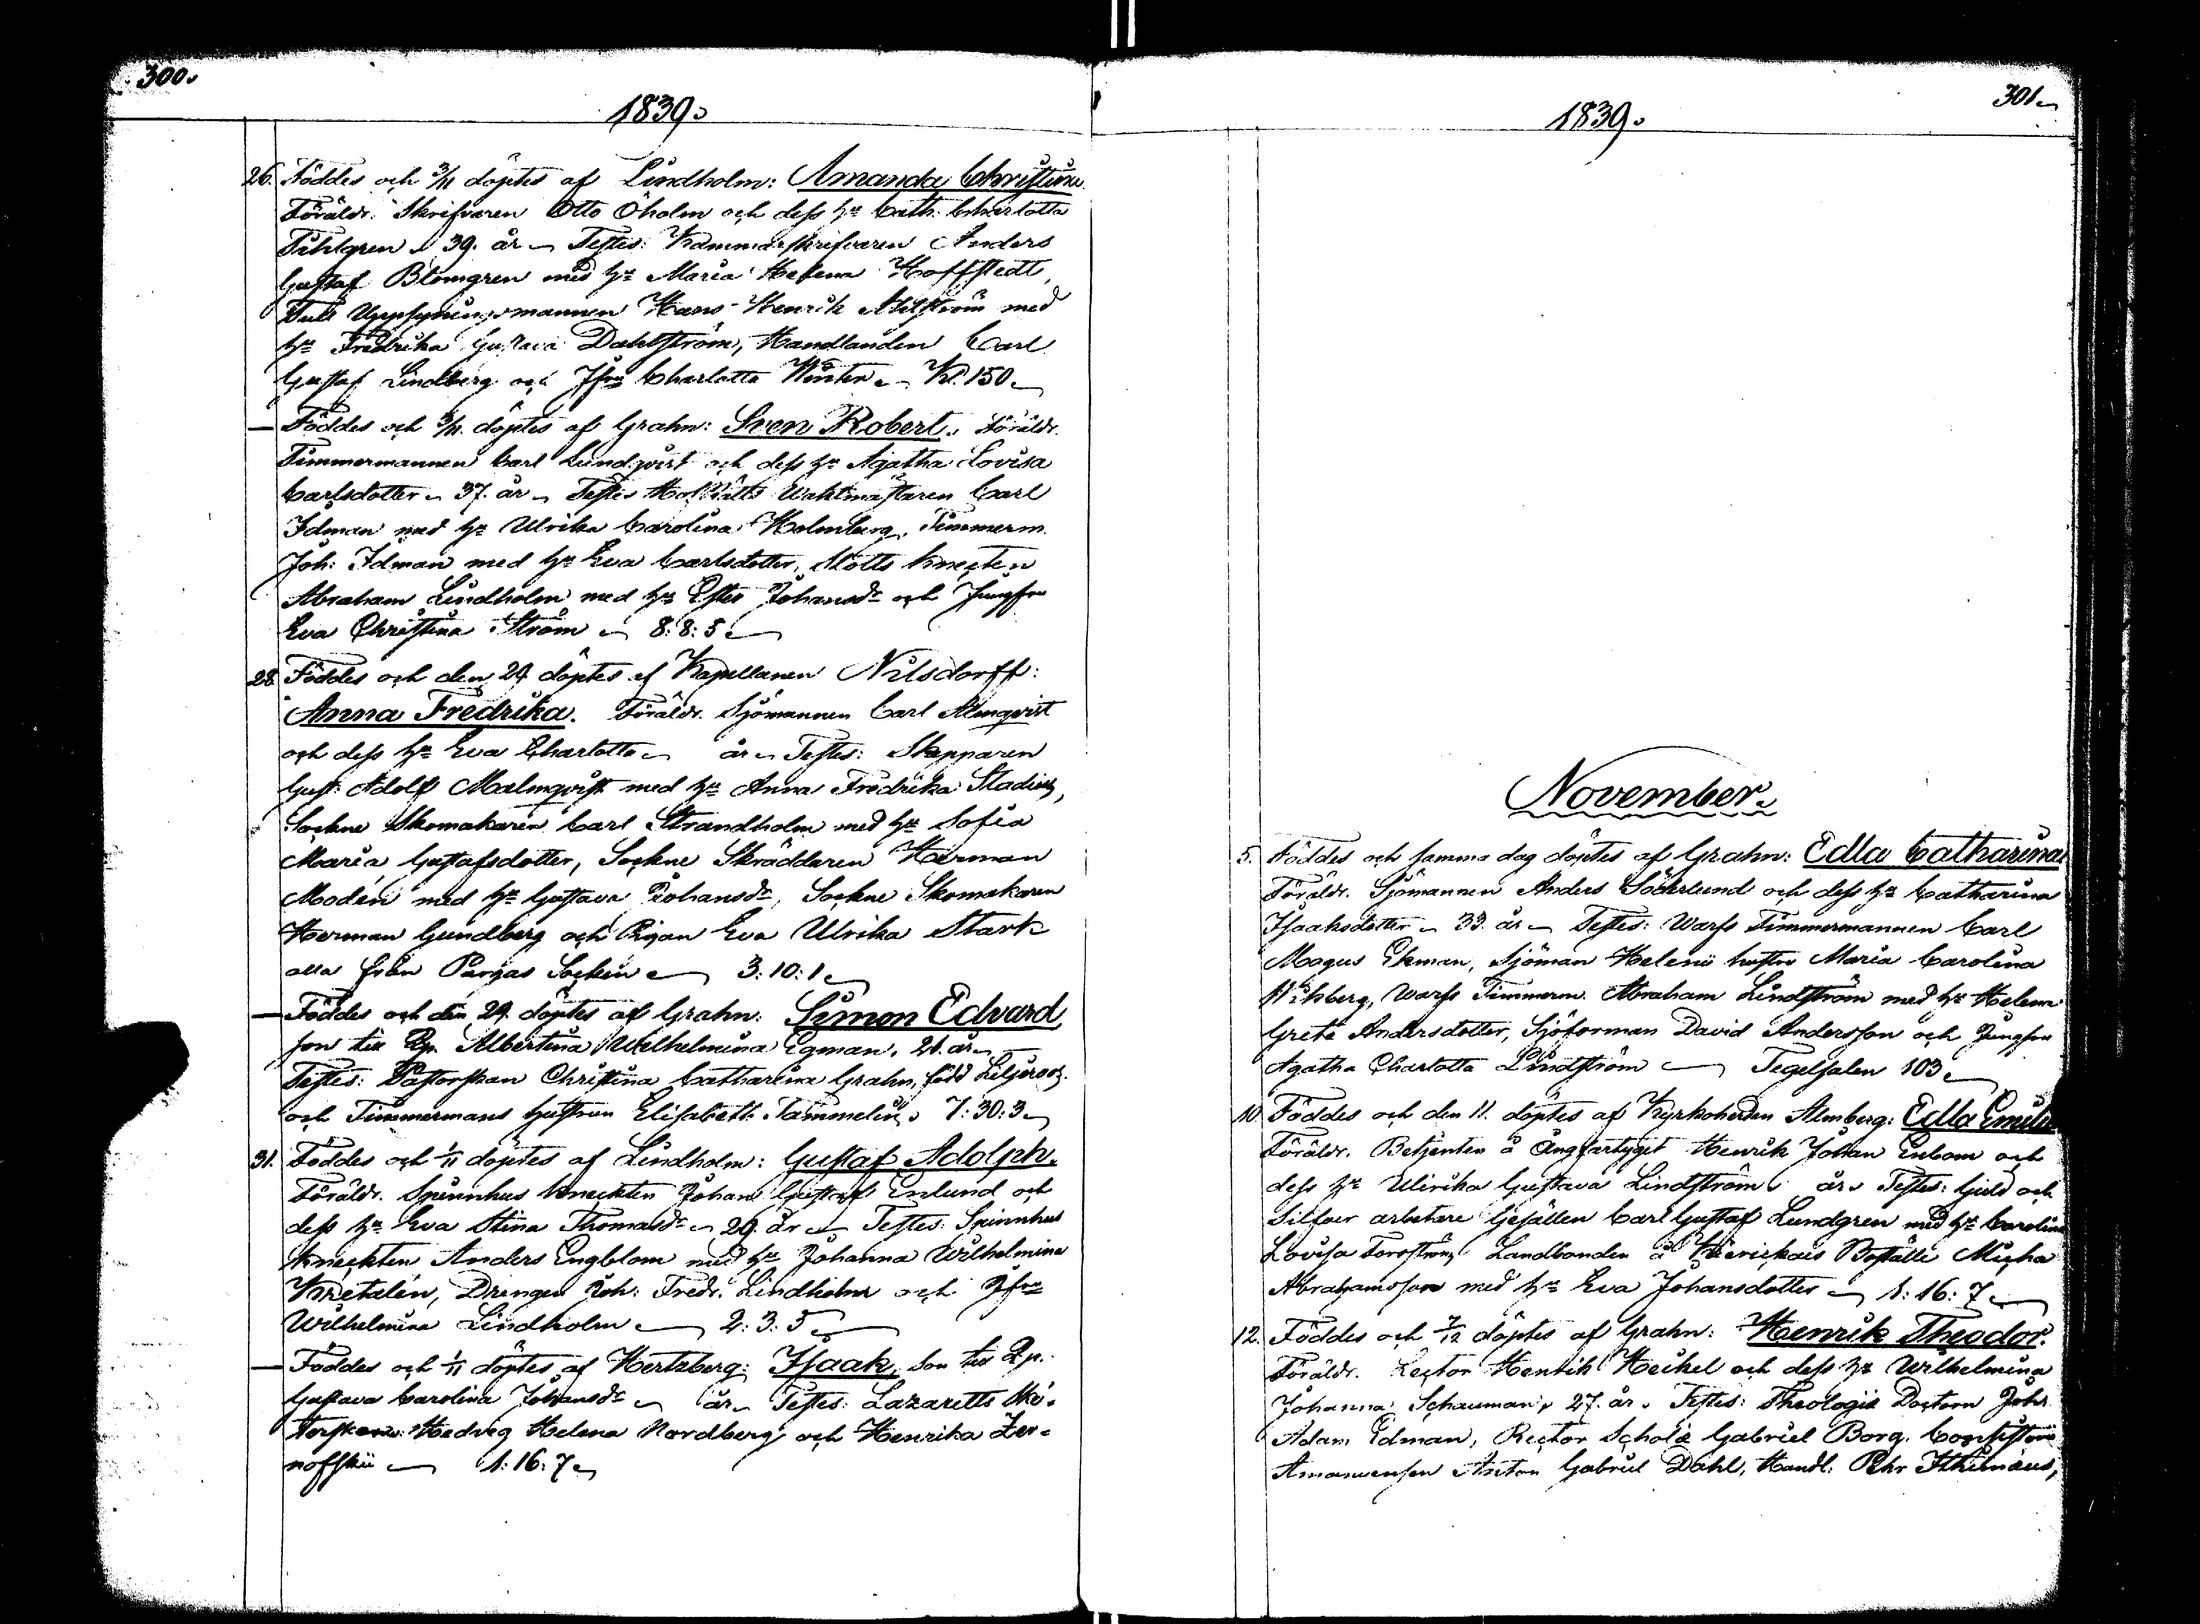 300.
1839.
26. Föddes och 3/11 döptes af Lindholm: Amanda Christina.
Föräldr. Skrifvaren Otto Öholm och dess h:u Cath. Charlotta
39. år. Testes: Kammarskrifvaren Anders
Gustaf Blomgren med h:u Maria Helena Hoffstedt,
Tull Uppsyningsmannen Hans Henrik Ahlström med
h:u Fredrika Gustava Dahlström, Handlanden Carl
Gustaf Lindberg och Jfru Charlotta Winter. Kl. 150.
— Föddes och 3/11. döptes af Grahn: Sven Robert. Föräldr.
Timmermannen Carl Lundqvist och dess h:u Agatha Lovisa
Carlsdotter. 37. år. Testes Hofrätts Waktmästaren Carl
Idman med h:u Ulrika Carolina Holmberg, Timmerm.
Joh: Idman med h:u Eva Carlsdotter, Slotts knekten
Abraham Lindholm med h:u Ester Johansd:r och Jungfru
Eva Christina Ström. 8:8:5.
28. Föddes och den 29 döptes af Kapellanen Nilsdorff:
Anna Fredrika. Föräldr. Sjömannen Carl Almqvist
och dess h:u Eva Charlotta. år. Testes: Skepparen
Gust: Adolf Malmqvist med h:u Anna Fredrika
Sockne Skomakaren Carl Strandholm med h:u Sofia
Maria Gustafsdotter, Sockne Skräddaren Herman
Modén med h:u Gustava Johansd:r, Sockne Skomakaren
Herman Gundberg och Pigan Eva Ulrika Stark
alla från Pargas Socken. 3:10:1.
— Föddes och den 29. döptes af Grahn: Simon Edvard
son till Qp. Albertina Wilhelmina Egman. 21. år.
Testes: Pastorskan Christina Catharina Grahn, född
och Timmermans hustrun Elisabeth Tammelin. 7:30:3.
31. Föddes och 1/11 döptes af Lindholm: Gustaf Adolph.
Föräldr. Spinnhus knekten Johan Gustaf Enlund och
dess h:u Eva Stina Thomasd:r. 29. år. Testes: Spinnhus
knekten Anders Engblom med h:u Johanna Wilhelmina
Kretalén, Drengen Joh: Fredr. Lindholm och Jfru
Wilhelmina Lindholm. 2:3:5
— Föddes och 1/11 döptes af Hertzberg: Isaak, son till Qp.
Gustava Carolina Johansd:r. år. Testes: Lazaretts Skö-
terskan: Hedvig Helena Nordberg och Henrika Zer-
noffskii. 1:16:7.
301.
1839.
November.
5. Föddes och samma dag döptes af Grahn: Edla Catharina
Föräldr. Sjömannen Anders Söderlund och dess h:u Catharina
Isaaksdotter. 33. år. Testes: Warfs Timmermannen Carl
Magus Ekman, Sjöman Helenii hustru Maria Carolina
Wikberg, Warfs Timmerm. Abraham Lindström med h:u Helena
Greta Andersdotter, Sjöforman David Andersson och Jungfru
Agatha Charlotta Lindström. Tegelsalen 103.
10. Föddes och den 11. döptes af Kyrkoherden Almberg: Edla Emilia
Föräldr. Betjenten å Ångfartyget Henrik Johan Enbom och
dess h:u Ulrika Gustava Lindström. år. Testes: Guld och
Silfver arbetare Gesällen Carl Gustaf Lundgren med h:u Carolina
Lovisa Forsström, Landbonden å Boställe Micha
Abrahamsson med h:u Eva Johansdotter. 1:16:7.
12. Föddes och 7/12 döptes af Grahn: Henrik Theodor.
Föräldr. Lector Henrik Heikel och dess h:u Wilhelmina
Johanna Schauman. 27. år. Testes: Theologie Doctorn Joh:
Adam Edman, Rector Scholæ Gabriel Borg, Consistorii
Amanuensen Anton Gabriel Dahl, Handl: Pehr